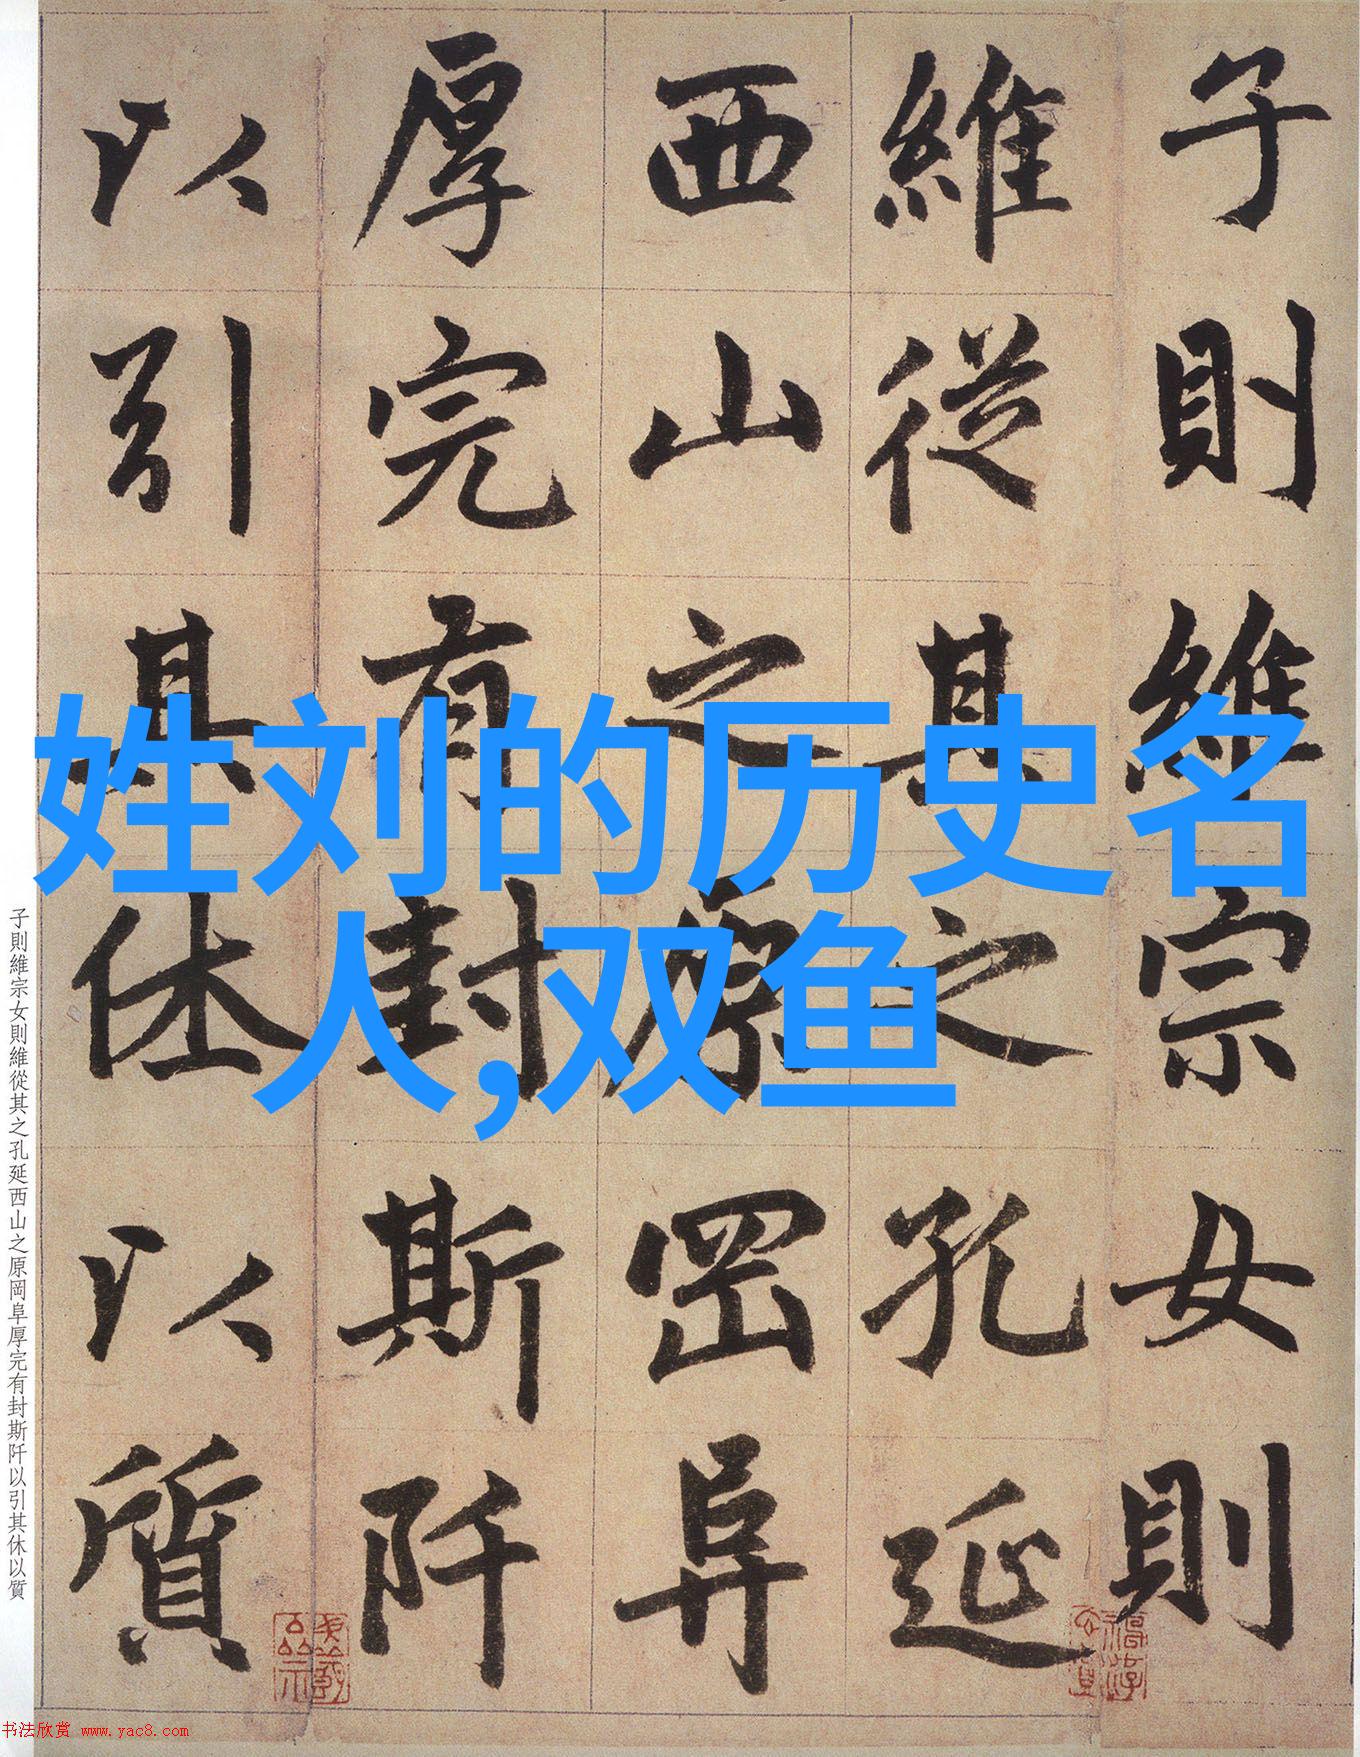 姓刘的历史名
人,双鱼
子則維宗女則
維從其之孔延
西山之原岡阜
厚完有封斯阡
以引其休以質
子則維宗女則維從其之孔延西山之原岡阜厚完有封斯阡以引其休以質
书法欣赏 www.yac8.com